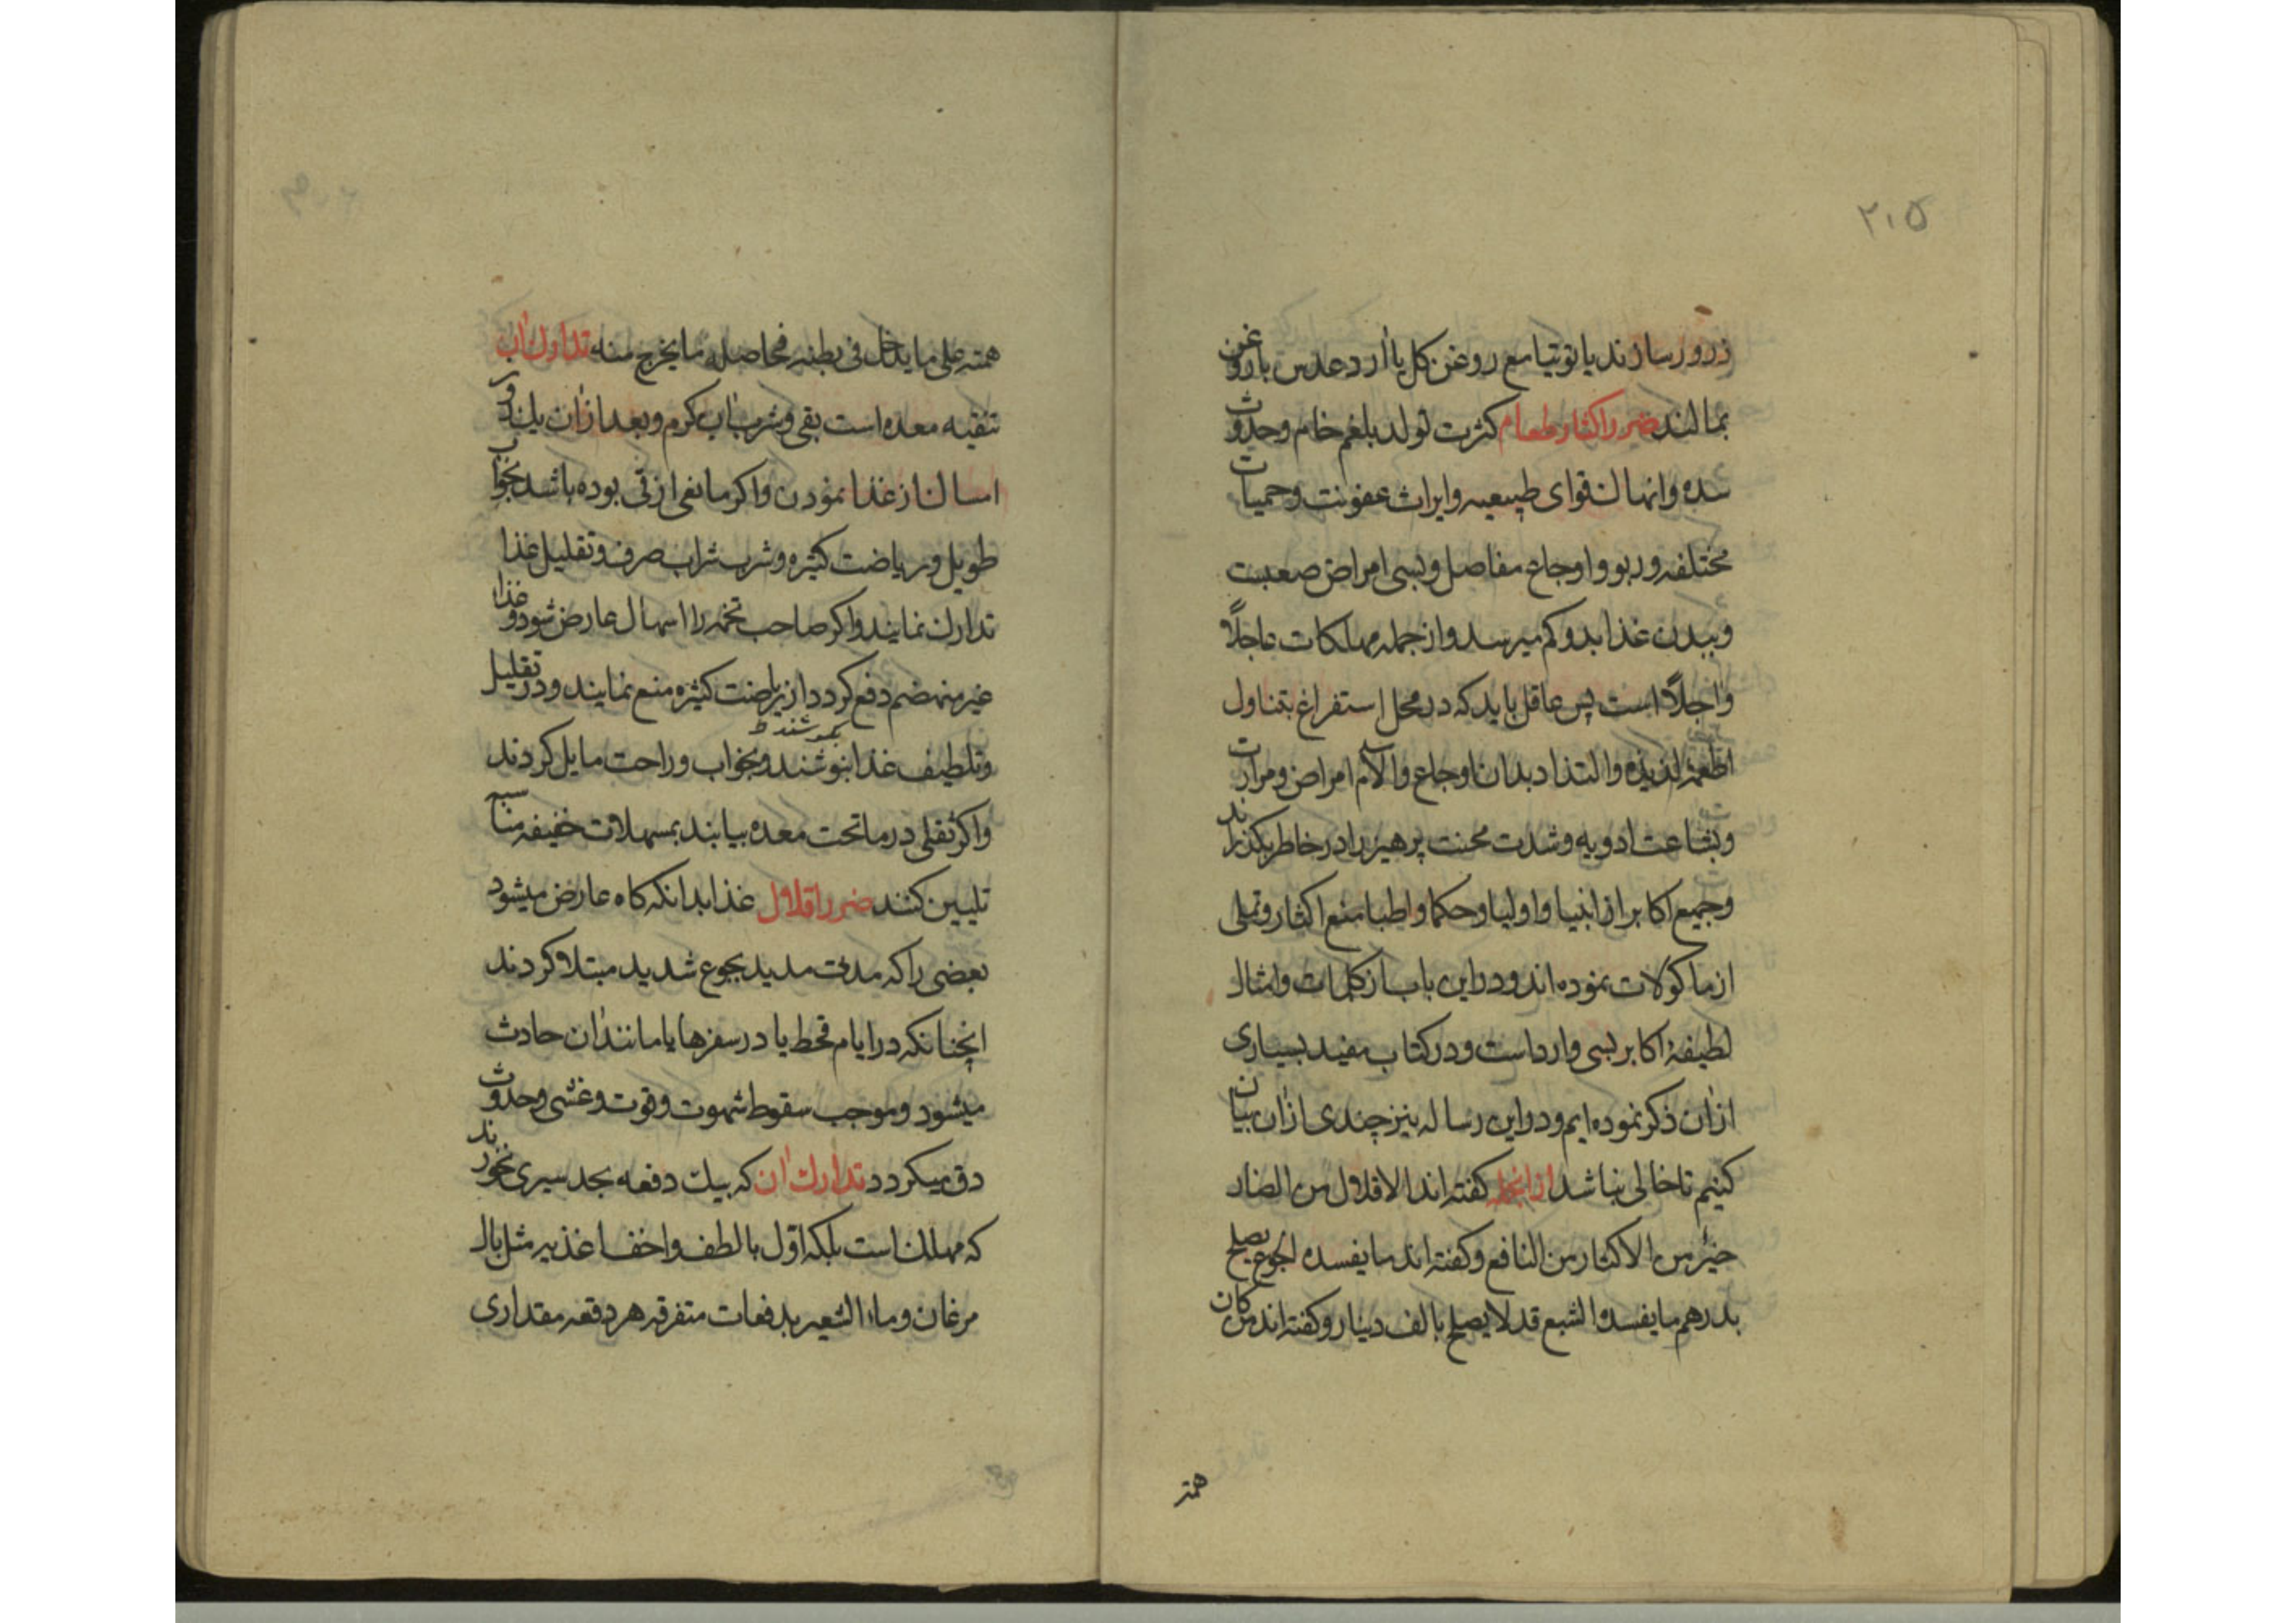 ۲۰۵
ذرور سازند یا توتیا مع روغن کل یا آرد عدس با روغن
بمالند ضرر اکثار طعام کثرت تولد بلغم خام وحدوث
سده وانهاک قوای طبیعیه وایراث عفونت وحمیات
مختلفه وربو واوجاع مفاصل وبسی امراض صعبت
وببدن غذا بدو کم میرسد واز جمله مهلکات عاجلاً
وآجلاً است پس عاقل باید که در محل استفراغ بتناول
اطعمهٔ لذیذه والتذاد بدان اوجاع وآلام امراض ومرارت
وبشاعت ادویه وشدت محنت پرهیز را در خاطر بکذراند
وجمیع اکابر از انبیا واولیا وحکما واطبا منع اکثار وتملی
از ماکولات نموده اند ودر این باب از کلمات وامثال
لطیفهٔ اکابر بسی وارد است ودر کتاب مفید بسیاری
ازان ذکر نموده ایم ودر این رساله نیز چندی ازان بیان
کنیم تا خالی نباشد ازانجمله کفته اند الاقلال من الضار
خیر من الاکثار من النافع وکفته اند ما یفسده الجوع یصلح
بدرهم ما یفسد الشبع قد لا یصلح بالف دینار وکفته اند من کان
همته
همته علی ما یدخل فی بطنه فحاصله ما یخرج منه تدارک آن
تنقیه معده است بقی وشرب آب کرم وبعد ازان یک روز
امساک از غذا نمودن واکر مانعی از قی بوده باشد بخواب
طویل وریاضت کثیره وشرب شراب صرف وتقلیل غذا
تدارک نمایند واکر صاحب تخمه را اسهال عارض شود وغذا
غیر منهضم دفع کردد از ریاضت کثیره منع نمایند ودر تقلیل
وتلطیف غذا بنوشند وبخواب وراحت مایل کردند
واکر ثقلی در ما تحت معده بیابند بمسهلات خفیفه مناسبه
تلیین کنند ضرر اقلال غذا بدانکه کاه عارض میشود
بعضی را که مدت مدید بجوع شدید مبتلا کردند
انچنانکه در ایام قحط یا در سفرها یا مانند آن حادث
میشود وموجب سقوط شهوت وقوت وغشی وحدوث
دق میکردد تدارک آن که بیک دفعه بحد سیری نخورند
که مهلک است بلکه اول با لطف واخف اغذیه مثل بال
مرغان وماء الشعیر بدفعات متفرقه هر دفعه مقداری